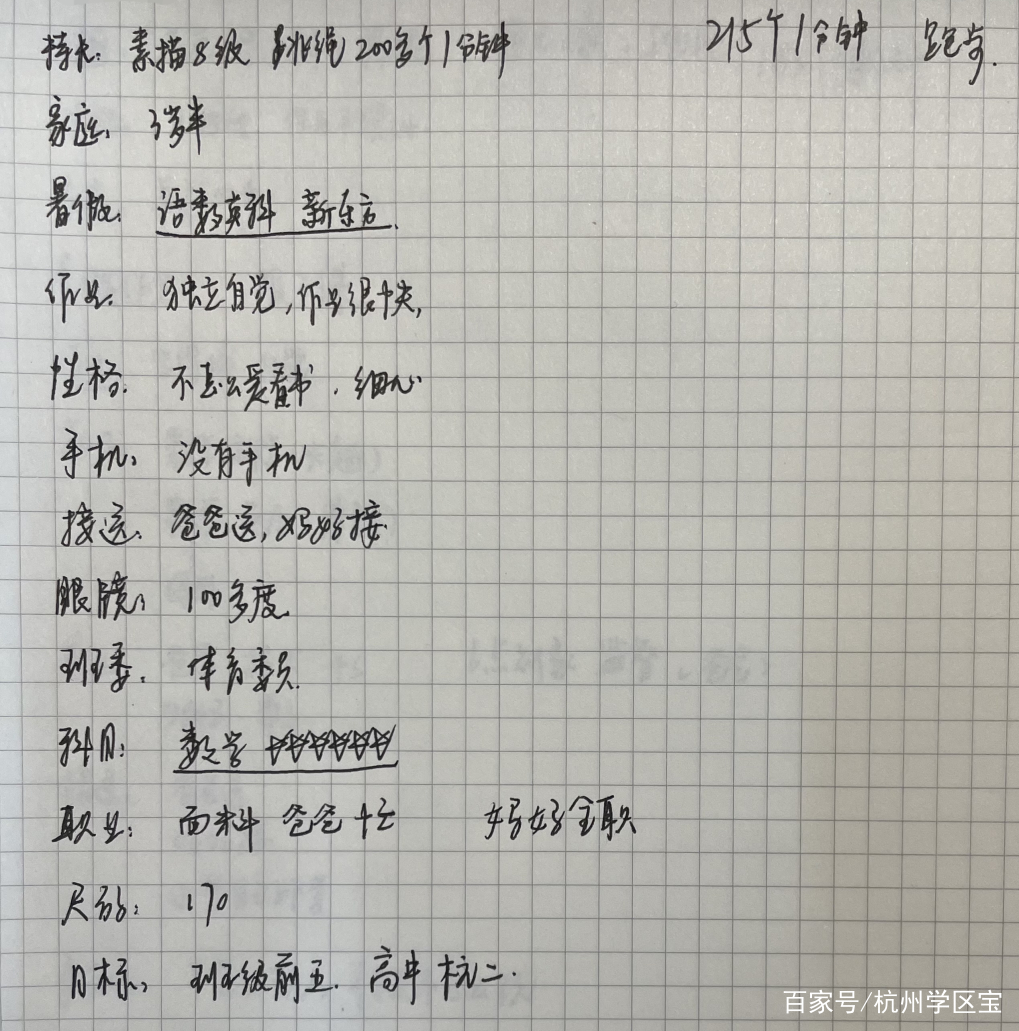 特长：素描8级 跳绳200多个1分钟 215个1分钟 跑步.
家庭：3岁半
暑假：语数英科 新东方.
作业：独立自觉,作业很快,
性格：不怎么爱看书.细心
手机：没有手机
接送：爸爸送,妈妈接
眼镜：100多度
班委：体育委员.
科目：数学 ☆☆☆☆☆☆
职业：面料 爸爸 妈妈全职
尺码：170
目标：班级前五.高中杭二.
百家号/杭州学区宝